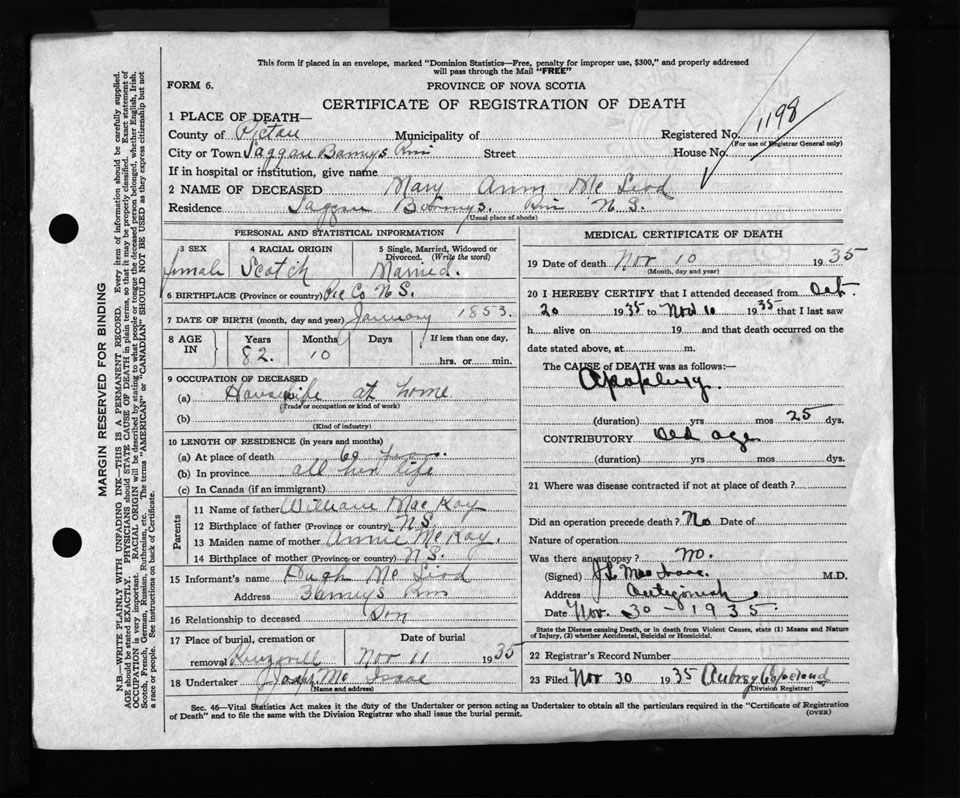 This form if placed in an envelope, marked "Dominion Statistics—Free, penalty for improper use, $300," and properly addressed
will pass through the Mail "FREE"
FORM 6.
PROVINCE OF NOVA SCOTIA
CERTIFICATE OF REGISTRATION OF DEATH
1 PLACE OF DEATH—
County of Pictou Municipality of Registered No. 1198
(For use of Registrar General only)
City or Town Street House No.
If in hospital or institution, give name
2 NAME OF DECEASED Mary Ann McLeod
Residence N.S.
(Usual place of abode)
PERSONAL AND STATISTICAL INFORMATION
3 SEX
female
4 RACIAL ORIGIN
Scotch
5 Single, Married, Widowed or
Divorced. (Write the word)
Married.
6 BIRTHPLACE (Province or country) Pic Co N.S.
7 DATE OF BIRTH (month, day and year) January 1853.
8 AGE
IN
Years
82.
Months
10
Days
If less than one day,
hrs. or min.
9 OCCUPATION OF DECEASED
(a) Housewife at home
(Trade or occupation or kind of work)
(b)
(Kind of industry)
10 LENGTH OF RESIDENCE (in years and months)
(a) At place of death 60 years
(b) In province all her life
(c) In Canada (if an immigrant)
Parents
11 Name of father William MacKay
12 Birthplace of father (Province or country) N.S.
13 Maiden name of mother Annie McKay.
14 Birthplace of mother (Province or country) N.S.
15 Informant's name Hugh McLeod
Address Barneys River
16 Relationship to deceased Son
17 Place of burial, cremation or
removal
Date of burial
Nov 11 1935
18 Undertaker Joseph McIsaac
(Name and address)
MEDICAL CERTIFICATE OF DEATH
19 Date of death Nov 10 1935
(Month, day and year)
20 I HEREBY CERTIFY that I attended deceased from Oct.
20 1935 to Nov 10 1935 that I last saw
h alive on 19 and that death occurred on the
date stated above, at m.
The CAUSE of DEATH was as follows:—
Apoplexy.
(duration) yrs mos 25 dys.
CONTRIBUTORY Old age
(duration) yrs mos dys.
21 Where was disease contracted if not at place of death?
Did an operation precede death? No Date of
Nature of operation
Was there an autopsy? No.
(Signed) J.L. MacIsaac. M.D.
Address Antigonish
Date Nov. 30 - 1935.
State the Disease causing Death, or in death from Violent Causes, state (1) Means and Nature
of Injury, (2) whether Accidental, Suicidal or Homicidal.
22 Registrar's Record Number
23 Filed Nov 30 1935 Aubrey Copeland
(Division Registrar)
Sec. 46—Vital Statistics Act makes it the duty of the Undertaker or person acting as Undertaker to obtain all the particulars required in the "Certificate of Registration
of Death" and to file the same with the Division Registrar who shall issue the burial permit.
(OVER)
MARGIN RESERVED FOR BINDING
N.B.—WRITE PLAINLY WITH UNFADING INK—THIS IS A PERMANENT RECORD. Every item of information should be carefully supplied.
AGE should be stated EXACTLY. PHYSICIANS should STATE CAUSE OF DEATH in plain terms, so that it may be properly classified. Exact statement of
OCCUPATION is very important. RACIAL ORIGIN will be described by stating to what people or tongue the deceased person belonged, whether English, Irish,
Scotch, French, German, Russian, Ruthenian, etc. The terms "AMERICAN" or "CANADIAN" SHOULD NOT BE USED as they express citizenship but not
a race or people. See instructions on back of Certificate.